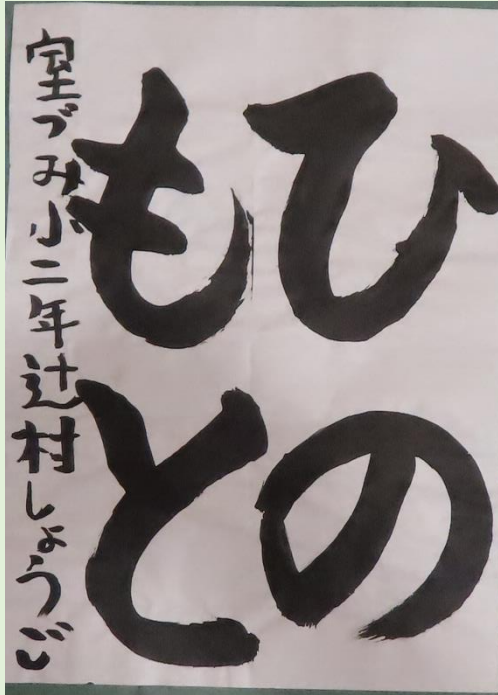 ひの
もと
室づみ小二年辻村しょうご